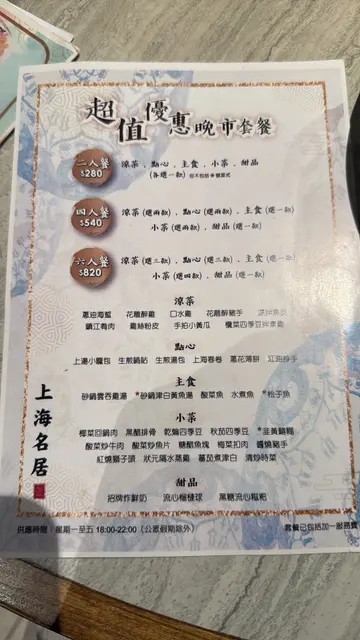 超值優惠晚市套餐
二人餐 $280
涼菜 , 點心 , 主食 , 小菜 , 甜品
(各選一款)
四人餐 $540
涼菜 (選兩款) , 點心 (選兩款) , 主食 (選一款)
小菜 (選兩款) , 甜品 (選一款)
六人餐 $820
涼菜 (選三款) , 點心 (選三款) , 主食 (選一款)
小菜 (選四款) , 甜品 (選一款)
涼菜
蔥油海蜇 花雕醉雞 口水雞 花雕醉豬手 涼拌魚皮
鎮江肴肉 雞絲粉皮 手拍小黃瓜 欖菜四季豆拌素雞
點心
上湯小籠包 生煎鍋貼 生煎湯包 上海春卷 蔥花薄餅 紅油抄手
主食
砂鍋雲吞雞湯 *砂鍋津白黃魚湯 酸菜魚 水煮魚 *松子魚
小菜
椰菜回鍋肉 黑醋排骨 乾煸四季豆 秋茄四季豆 *韭黃鱔糊
酸菜炒牛肉 酸菜炒魚片 糖醋魚塊 梅菜扣肉 醬燒豬手
紅燒獅子頭 狀元隔水蒸雞 蕃茄煮津白 清炒時菜
甜品
招牌炸鮮奶 流心榴槤球 黑糖流心糍粑
上海名居
供應時間:星期一至五 18:00-22:00 (公眾假期除外)
套餐已包括加一服務費